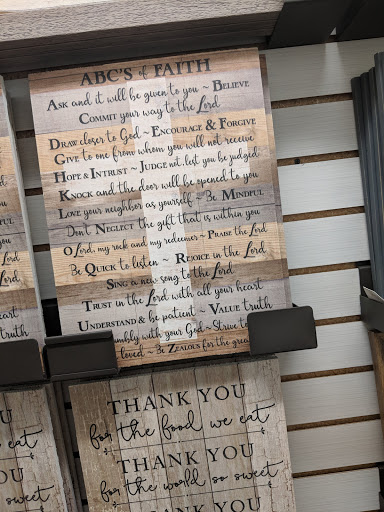 ABC'S of FAITH
ASK and it will be given to you ~ BELIEVE
COMMIT your way to the Lord
DRAW closer to God ~ ENCOURAGE & FORGIVE
GIVE to one from whom you will not receive
HOPE & INTRUST ~ JUDGE not, lest you be judged
KNOCK and the door will be opened to you
LOVE your neighbor as yourself ~ Be MINDFUL
Don't NEGLECT the gift that is within you
O Lord, my rock and my redeemer ~ PRAISE the Lord
Be QUICK to listen ~ REJOICE in the Lord
SING a new song to the Lord
TRUST in the Lord with all your heart
UNDERSTAND & be patient ~ VALUE truth
humbly with your God ~ Strive to
loved ~ Be ZEALOUS for the grea
THANK YOU
for the food we eat
THANK YOU
for the world so sweet
THANK YOU